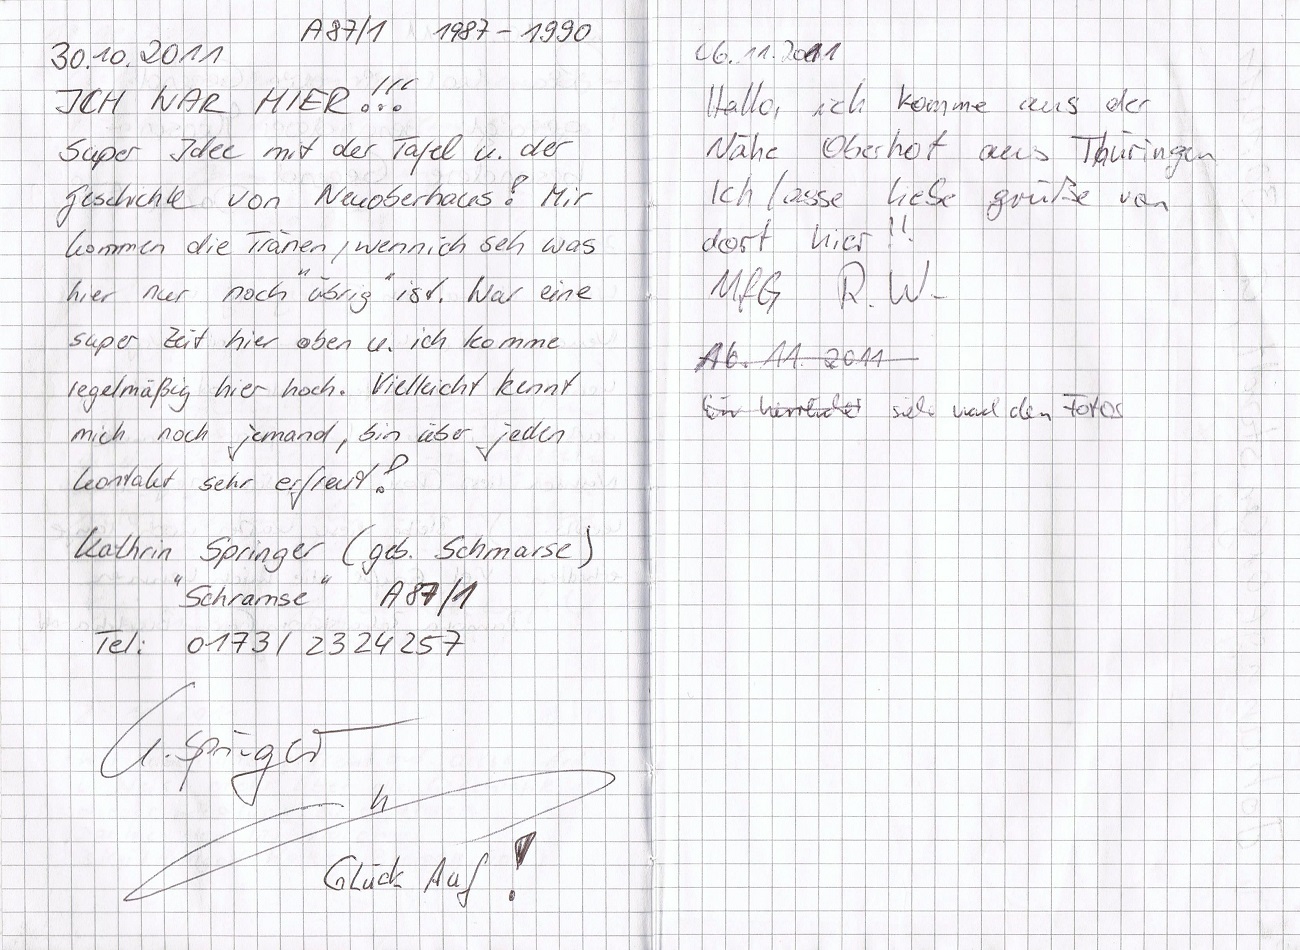 A87/1 1987-1990
30.10.2011
ICH WAR HIER!!!
Super Idee mit der Tafel u. der
Geschichte von Neuoberhaus! Mir
kommen die Tränen, wenn ich seh was
hier nur noch "übrig" ist. War eine
super Zeit hier oben u. ich komme
regelmäßig hier hoch. Vielleicht kennt
mich noch jemand, bin über jeden
Kontakt sehr erfreut!
Kathrin Springer (geb. Schmarse)
"Schramse" A87/1
Tel: 0173/2324257
K. Springer
Glück Auf!
06.11.2011
Hallo, ich komme aus der
Nähe Oberhof aus Thüringen
Ich lasse liebe grüße von
dort hier!!
MfG R.W.
16.11.2011
Ein herrlicher sieh nach den Fotos